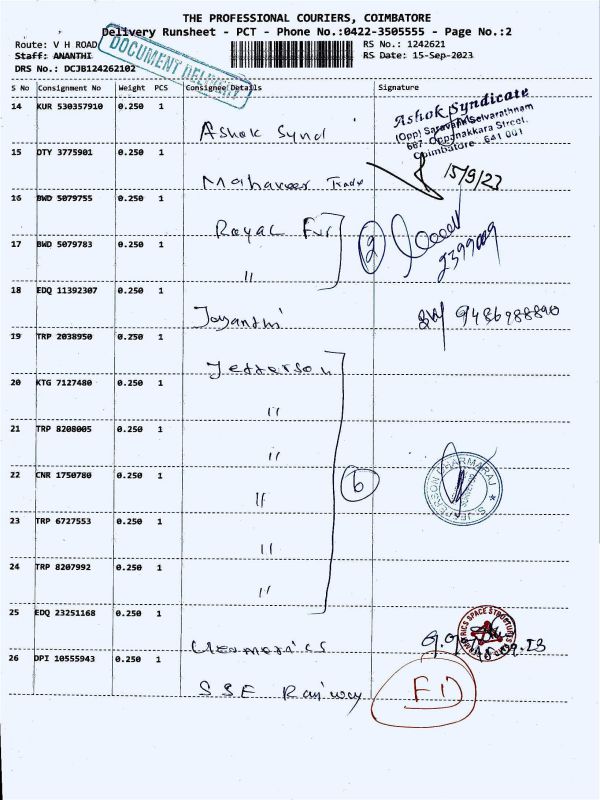 THE PROFESSIONAL COURIERS, COIMBATORE
Delivery Runsheet - PCT - Phone No.:0422-3505555 - Page No.:2
Route: V H ROAD RS No.: 1242621
Staff: ANANTHI RS Date: 15-Sep-2023
DRS No.: DCJB124262102
DOCUMENT DELIVERY
S No Consignment No Weight PCS Consignee Details Signature
14 KUR 530357910 0.250 1
Ashok Synd
Ashok Syndicate
(Opp) Saravana Selvarathnam
687, Oppanakkara Street,
Coimbatore - 641 001
15 DTY 3775901 0.250 1
Mahaveer Trade 15/9/23
16 BWD 5079755 0.250 1
Royal Fur 2
17 BWD 5079783 0.250 1
"
18 EDQ 11392307 0.250 1
Jayanthi
19 TRP 2038950 0.250 1
Jefferson
20 KTG 7127480 0.250 1
"
21 TRP 8208005 0.250 1
"
22 CNR 1750780 0.250 1
" 6
23 TRP 6727553 0.250 1
"
24 TRP 8207992 0.250 1
"
25 EDQ 23251168 0.250 1
26 DPI 10555943 0.250 1
SSE Railway